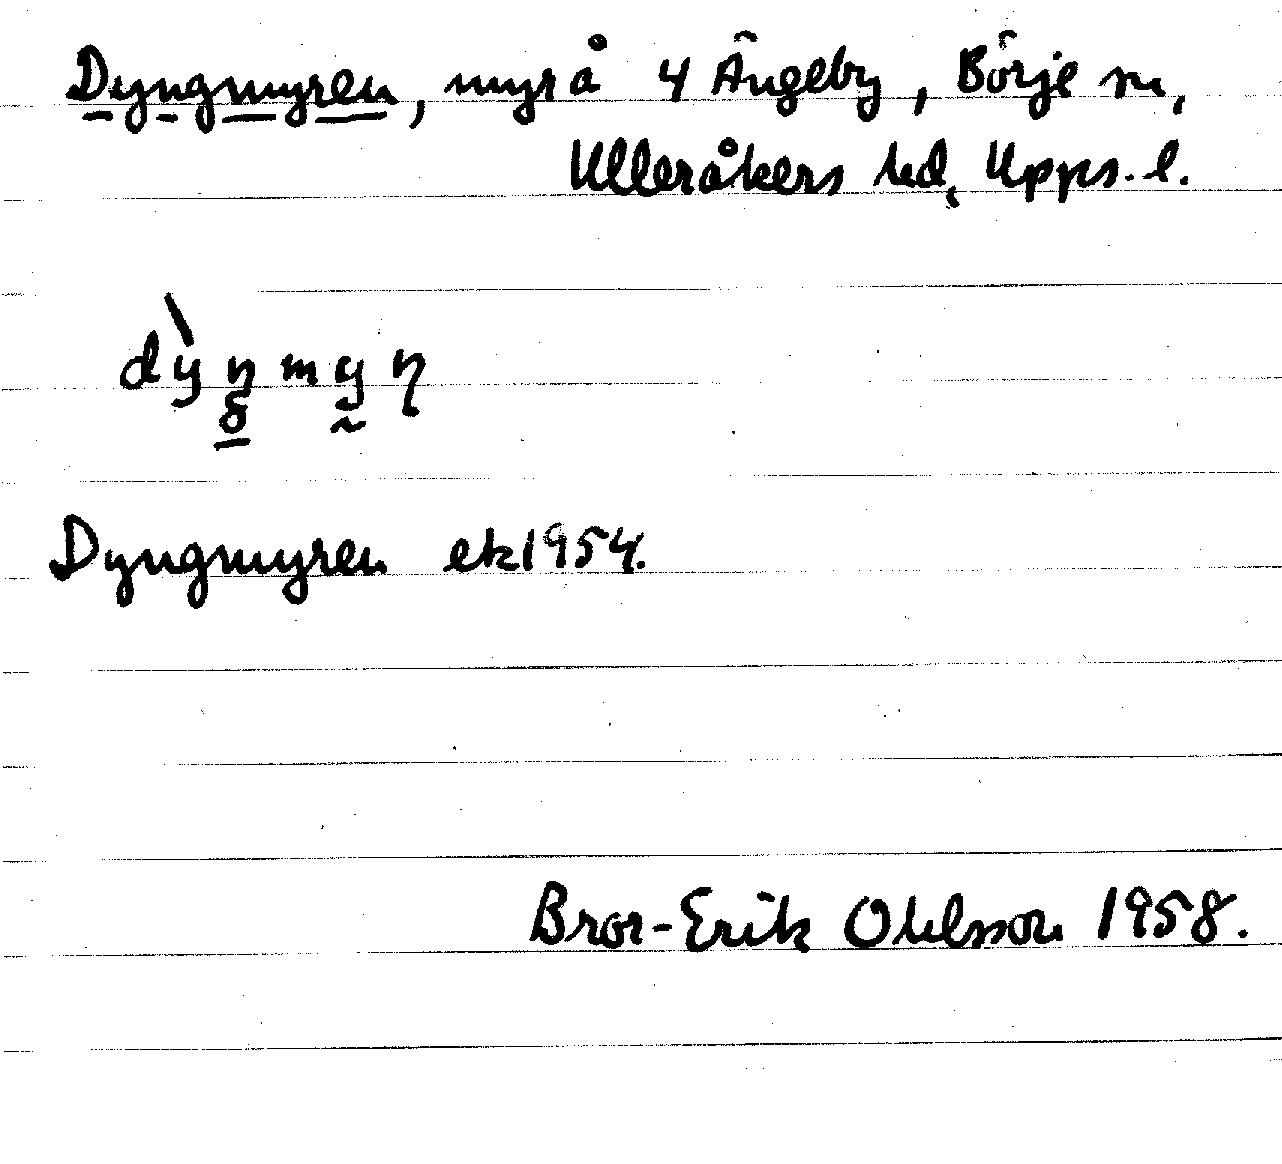 Dyngmyren, myr å 4 Ängeby, Börje sn,
Ulleråkers hd, Upps. l.
dỳŋmyn
Dyngmyren ek 1954.
Bror-Erik Ohlsson 1958.